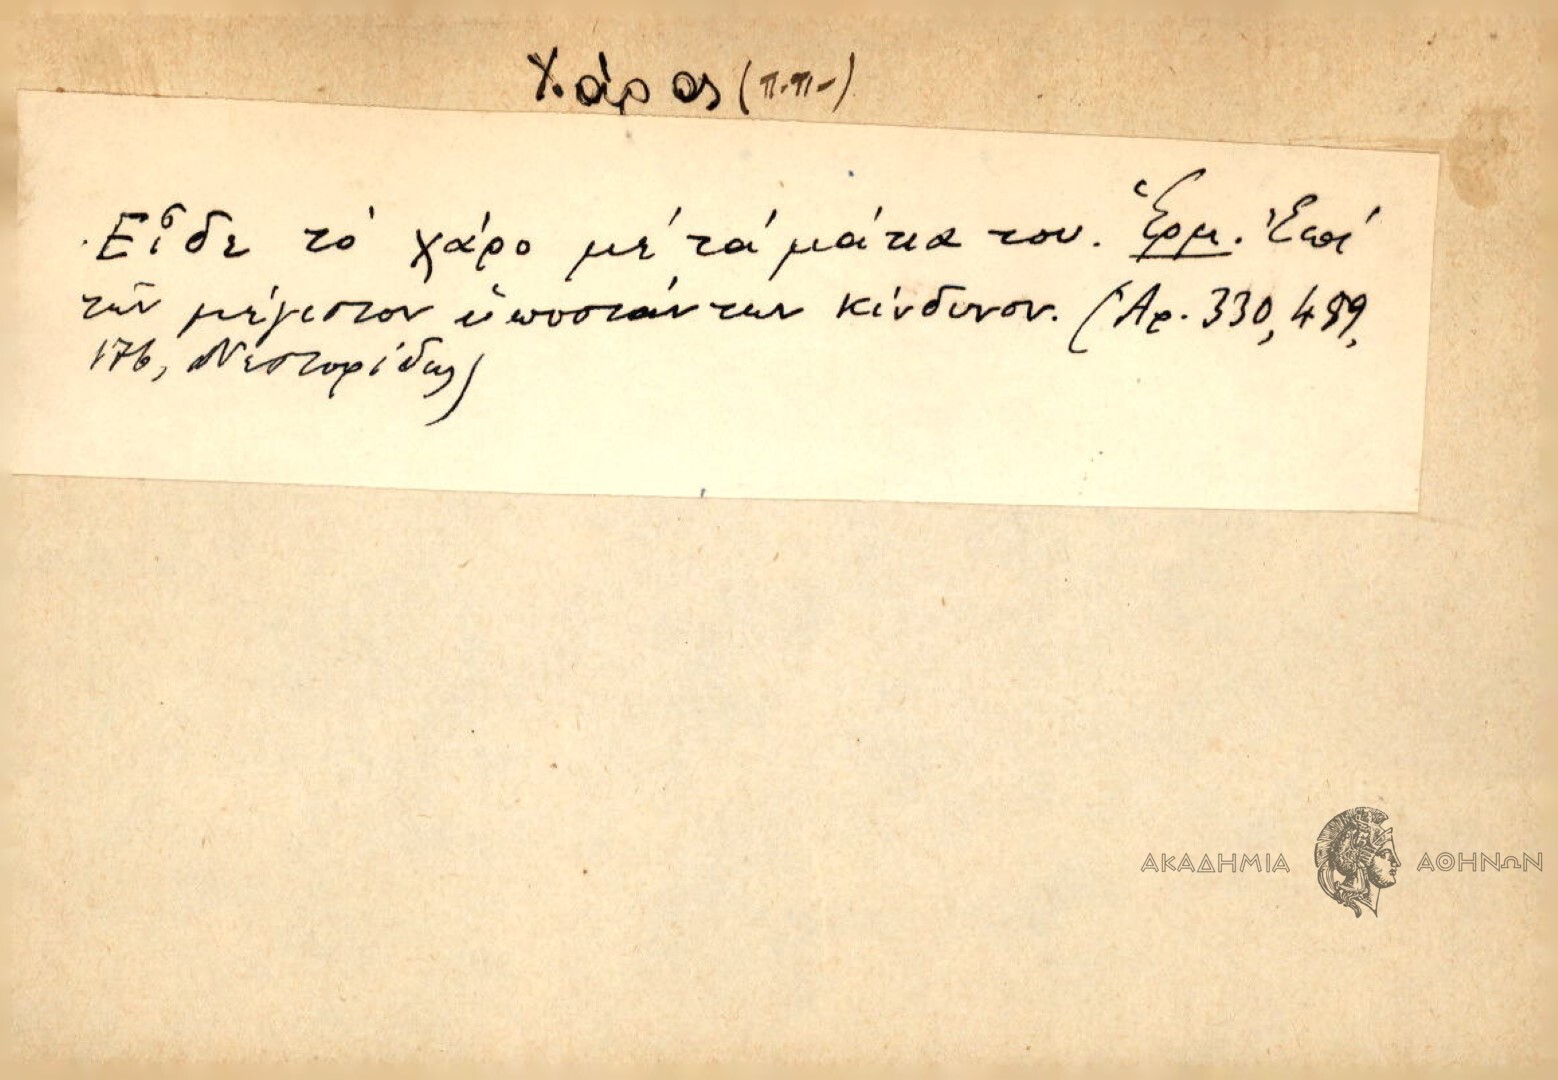 Χάρος (π.π.)
Εἶδε τὸ χάρο μὲ τὰ μάτια του. Ἑρμ. Ἐπὶ
τῶν μέγιστον ὑποστάντων κίνδυνον. (Ἀρ. 330, 489,
176, Νεστορίδης)
ΑΚΑΔΗΜΙΑ ΑΘΗΝΩΝ